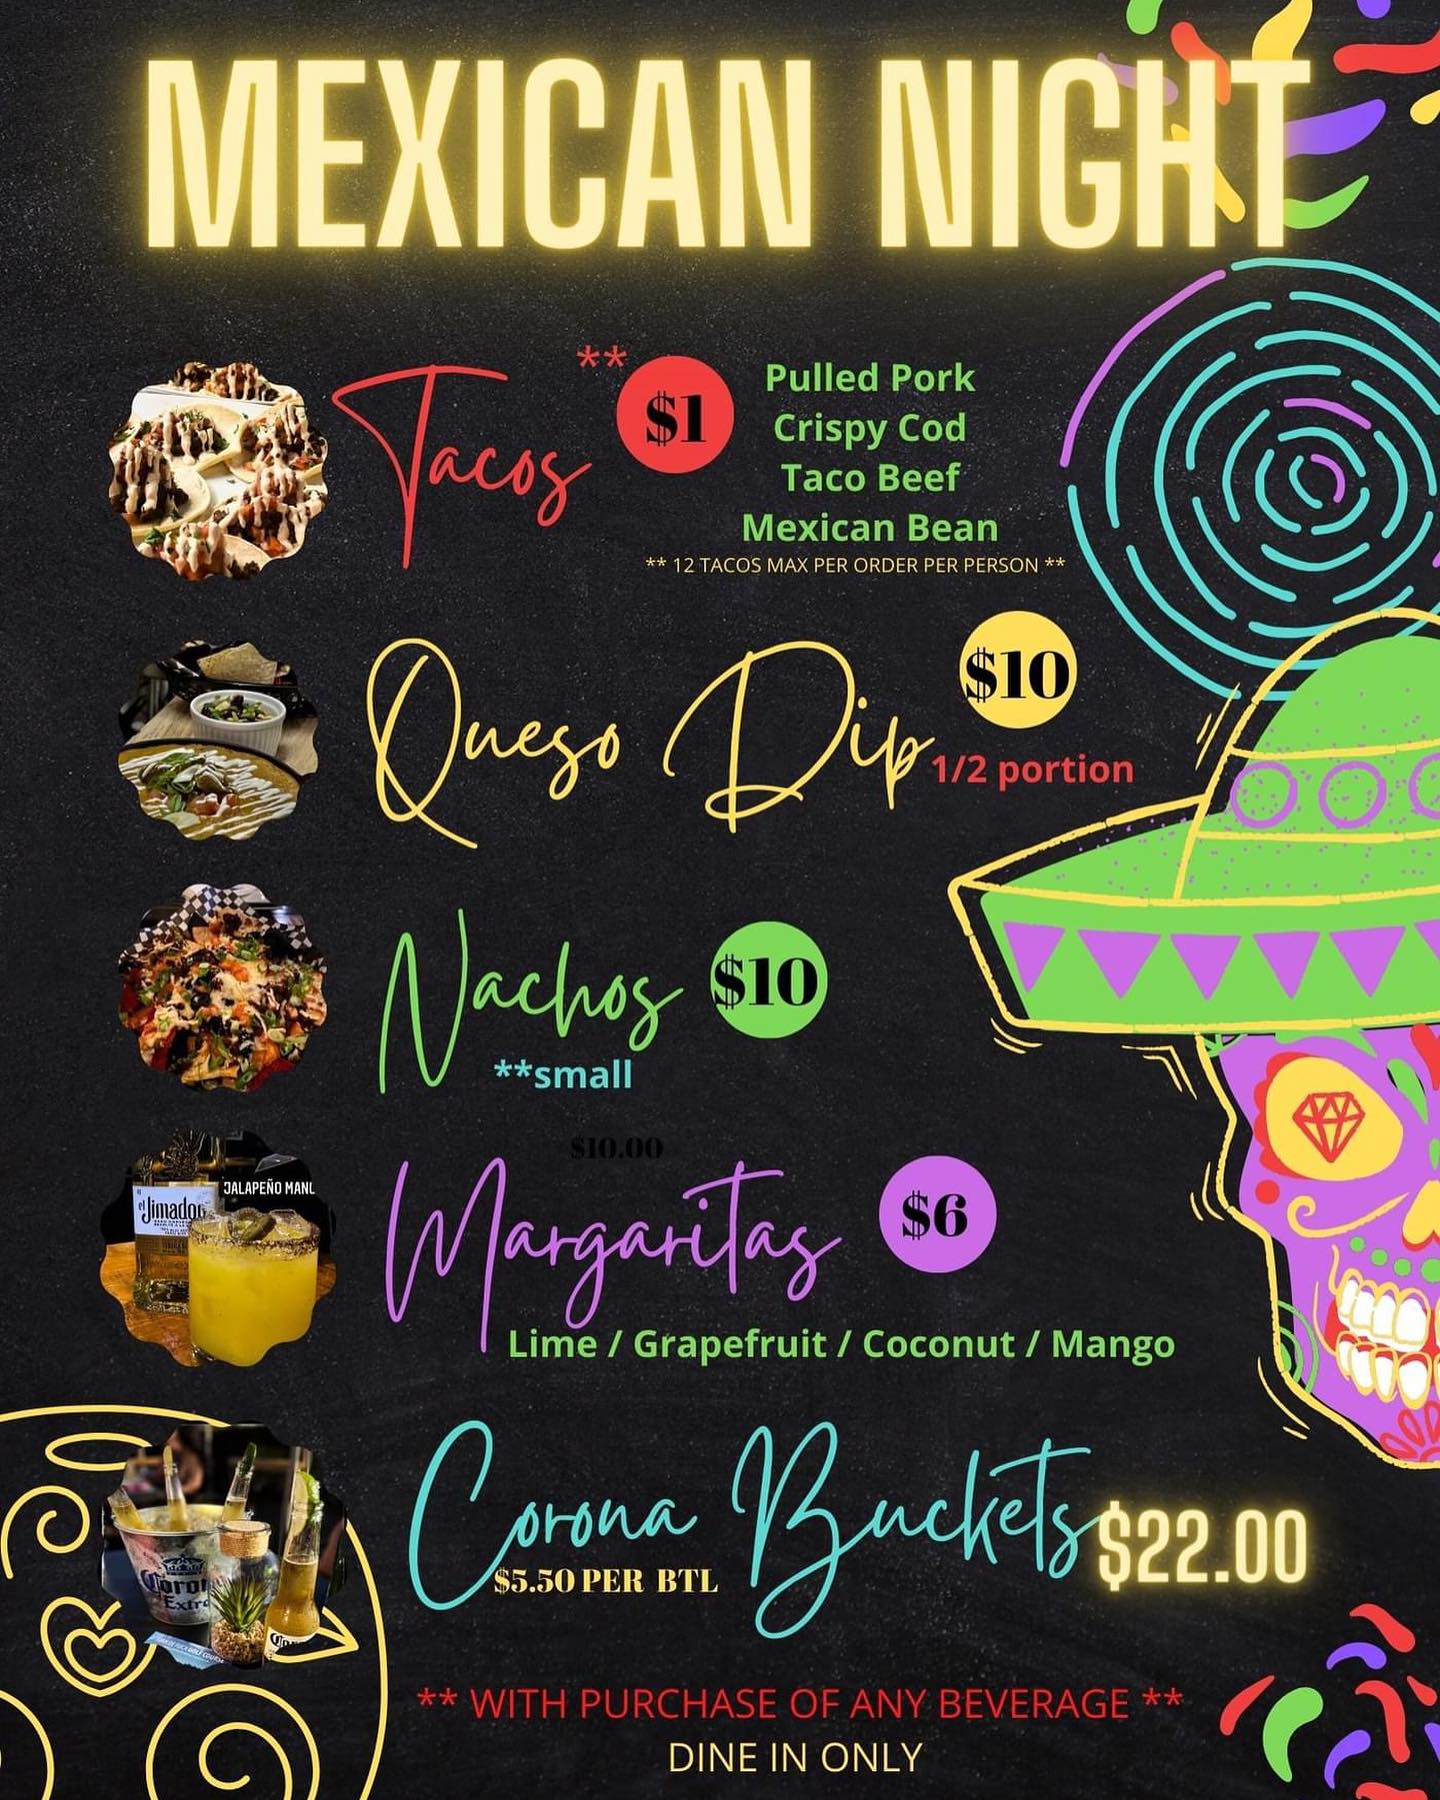 MEXICAN NIGHT
Tacos
**
$1
Pulled Pork
Crispy Cod
Taco Beef
Mexican Bean
** 12 TACOS MAX PER ORDER PER PERSON **
Queso Dip
$10
1/2 portion
Nachos
$10
**small
$10.00
Margaritas
$6
Lime / Grapefruit / Coconut / Mango
el Jimador
JALAPEÑO
Corona Buckets
$22.00
$5.50 PER BTL
Corona
Extra
** WITH PURCHASE OF ANY BEVERAGE **
DINE IN ONLY